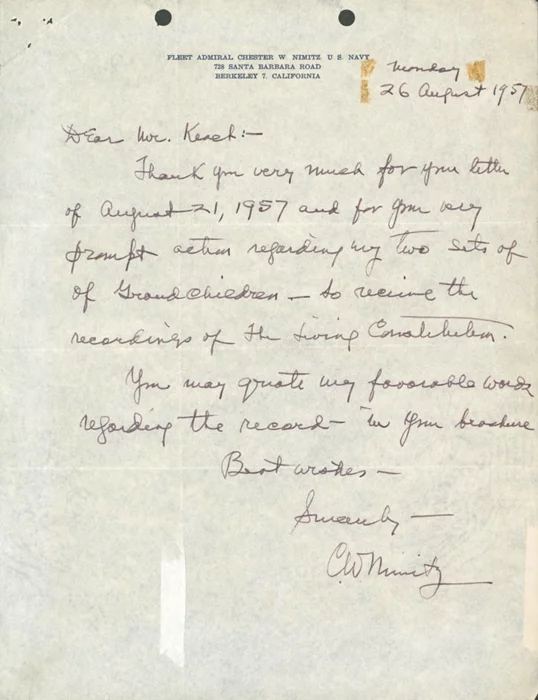 FLEET ADMIRAL CHESTER W. NIMITZ U. S. NAVY
728 SANTA BARBARA ROAD
BERKELEY 7, CALIFORNIA
Monday
26 August 1957
Dear Mr. Keach:—
Thank you very much for your letter
of August 21, 1957 and for your very
prompt action regarding my two sets of
of Grandchildren — to receive the
recordings of The Living Constitution.
You may quote my favorable words
regarding the record — in your brochure
Best wishes —
Sincerely —
C.W. Nimitz